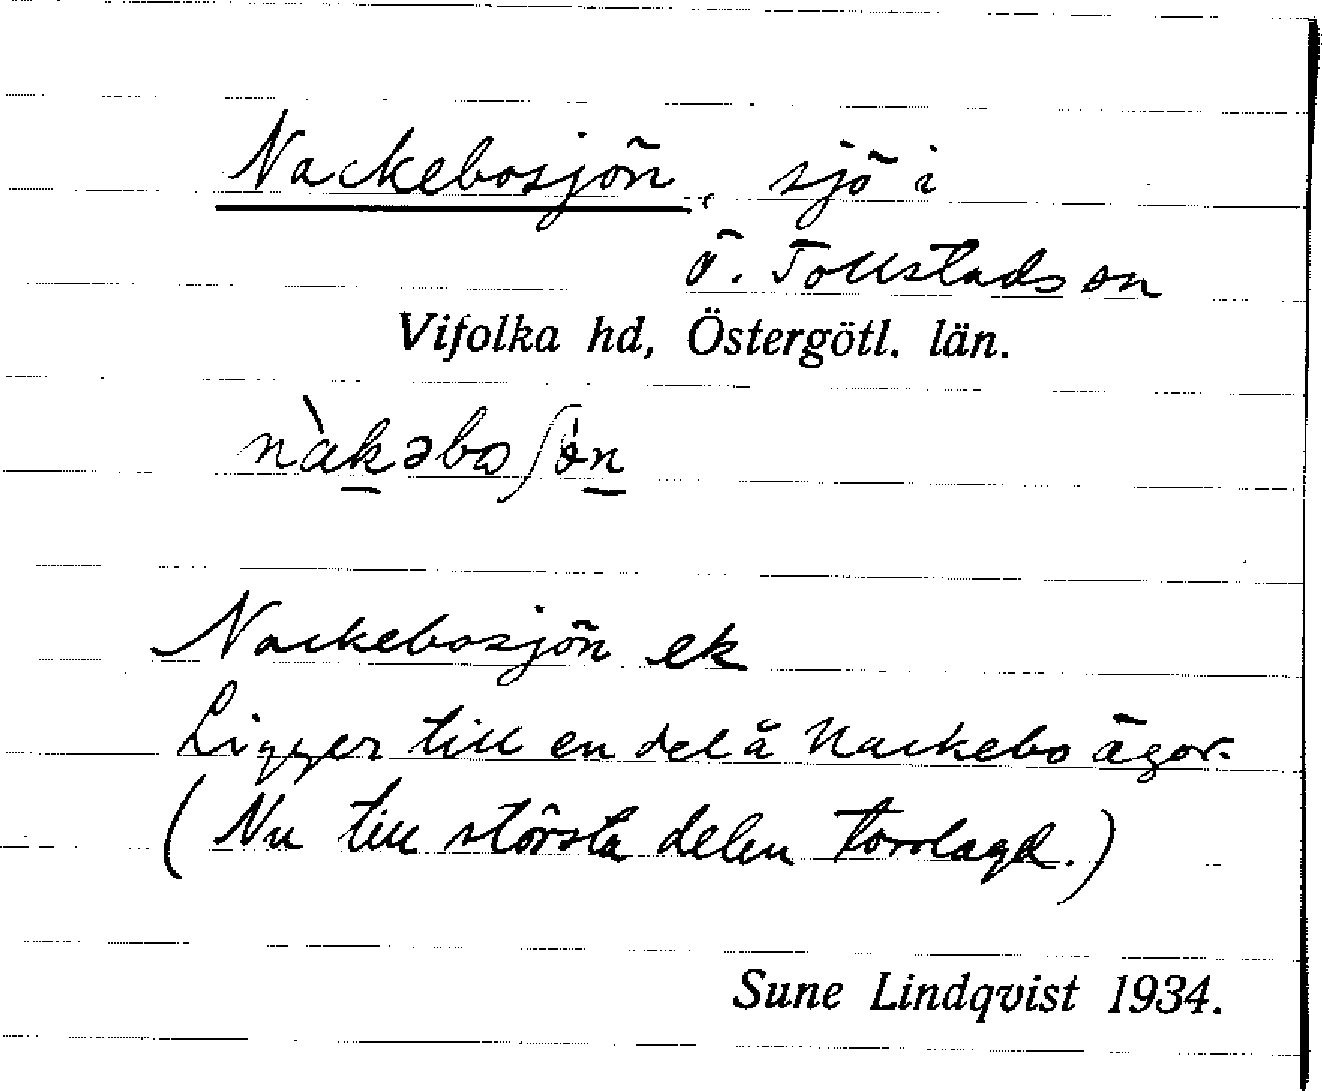 Nackebosjön, sjö i
Ö. Tollstads sn
Vifolka hd, Östergötl. län.
nàkəboʃön
Nackebosjön ek
Ligger till en del å Nackebo ägor.
(Nu till största delen torrlagd.)
Sune Lindqvist 1934.